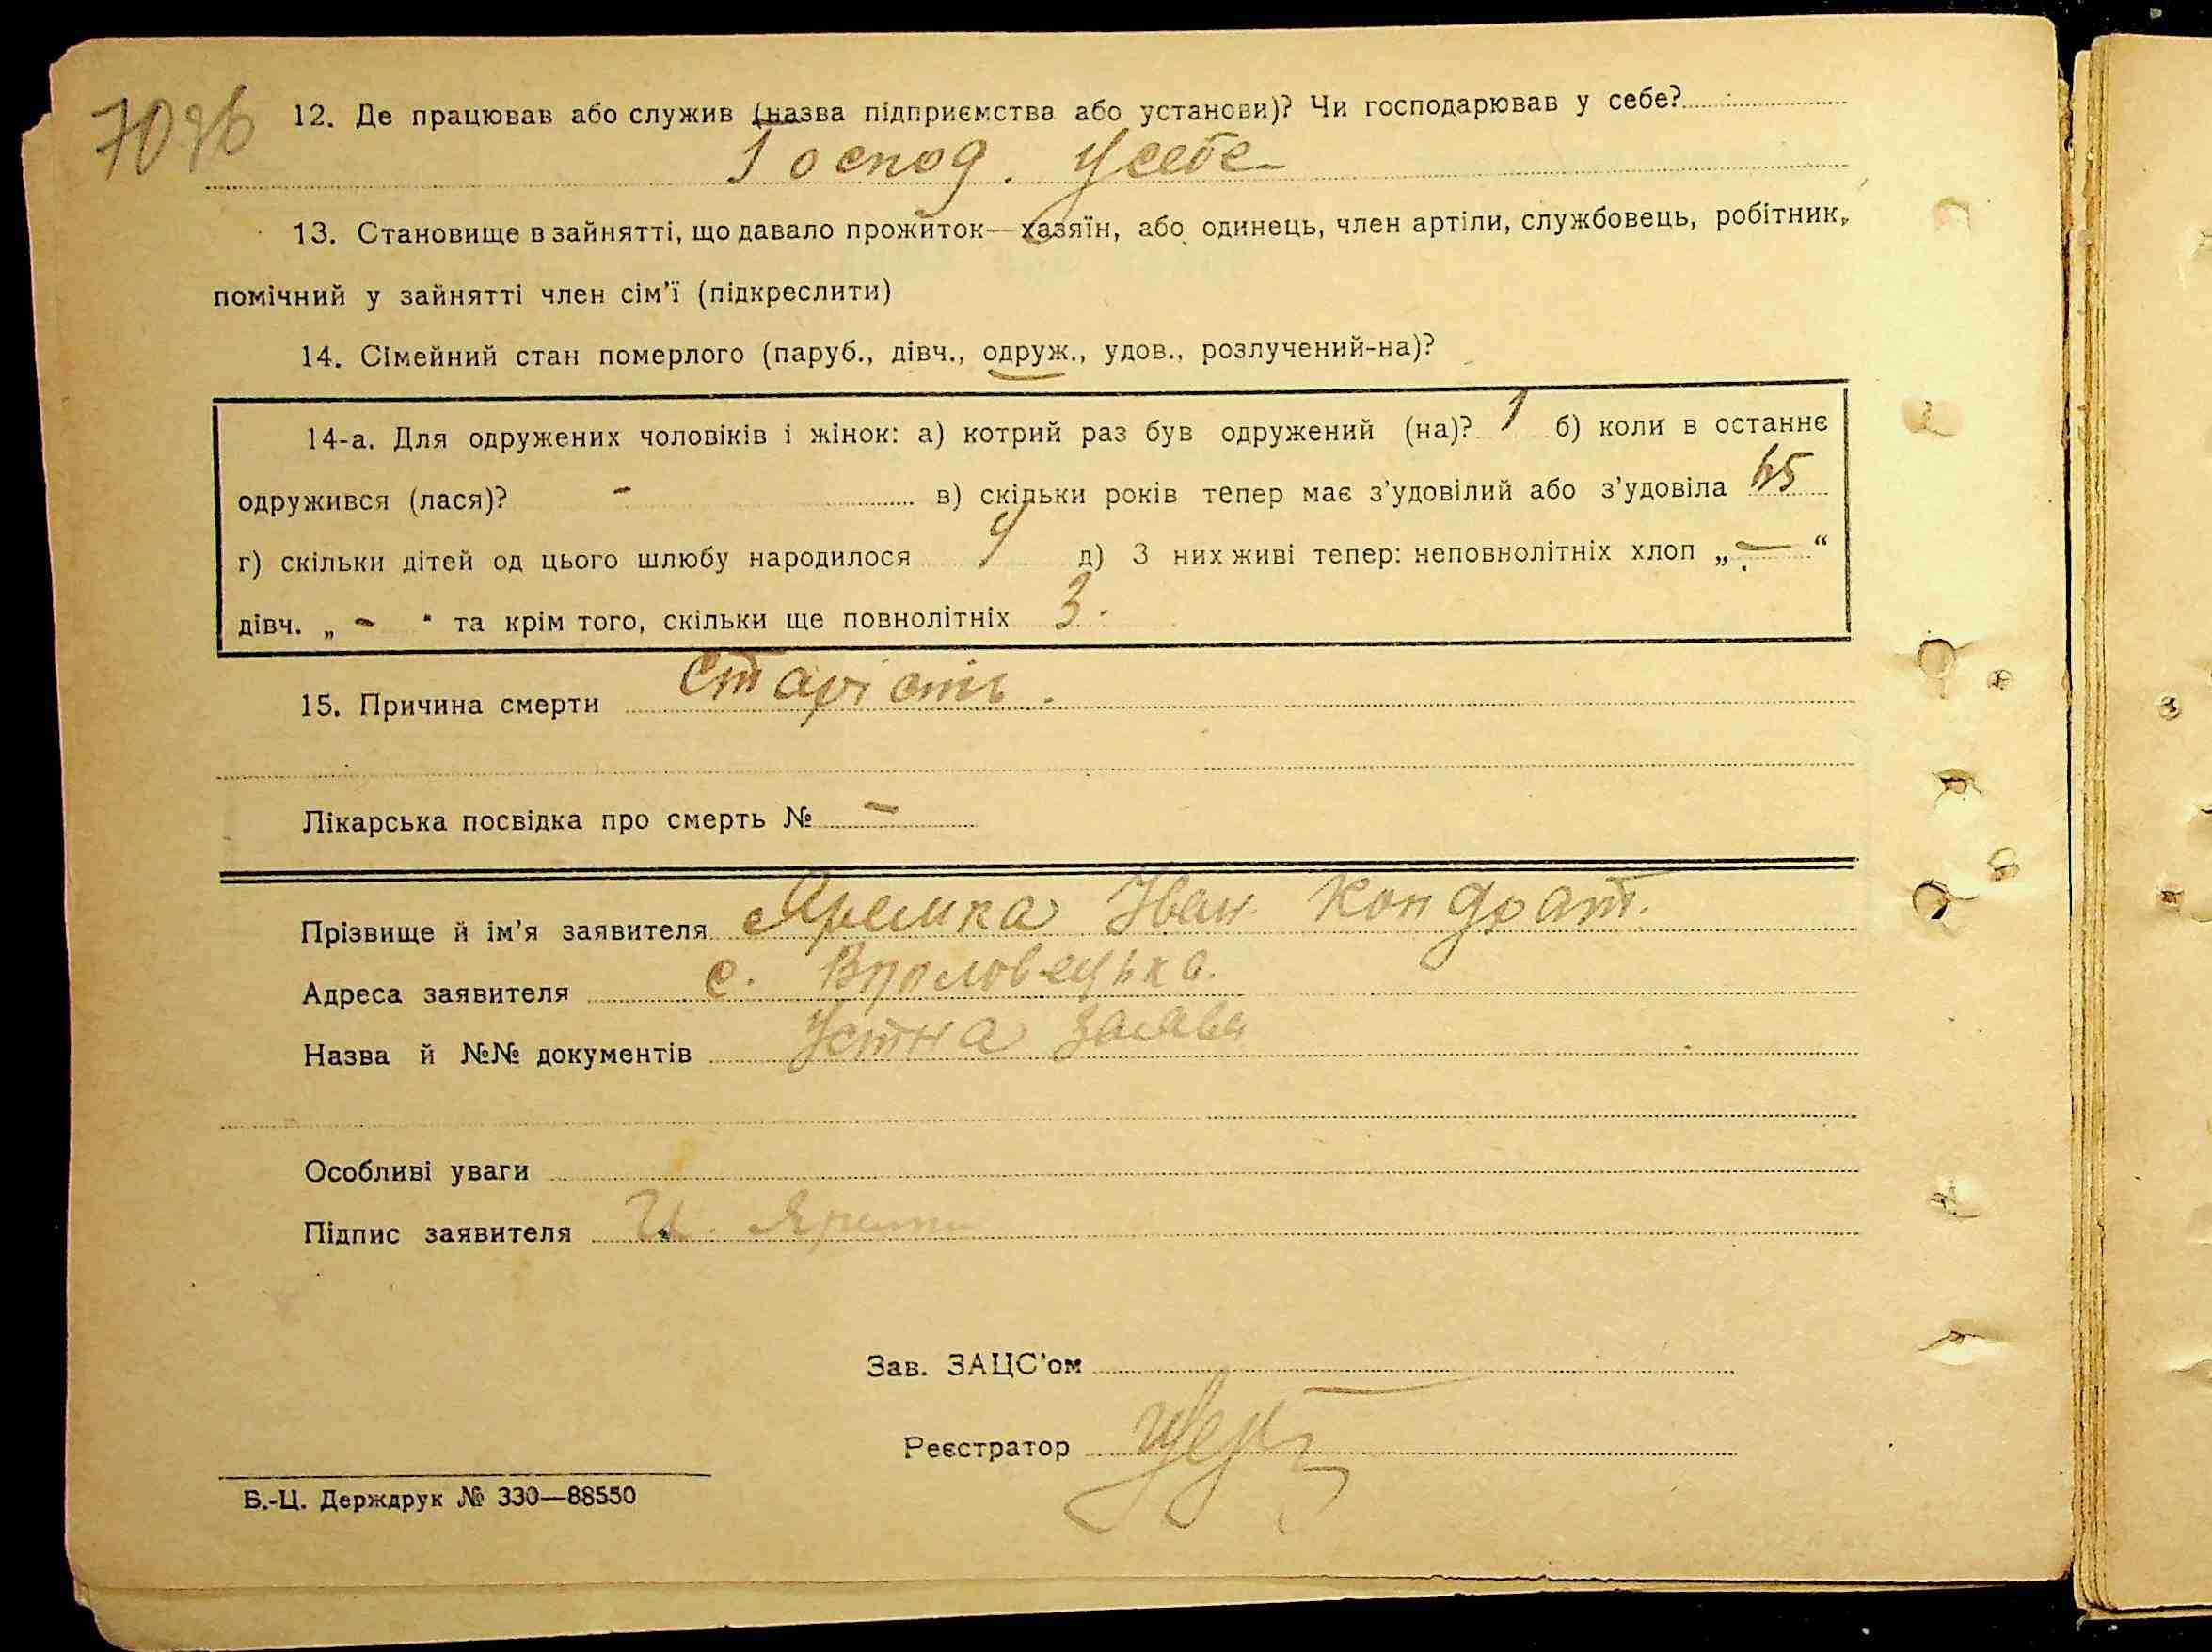 12. Де працював або служив (назва підприємства або установи)? Чи господарював у себе?
Господ. у себе
13. Становище в зайнятті, що давало прожиток—хазяїн, або одинець, член артіли, службовець, робітник,
помічний у зайнятті член сім'ї (підкреслити)
14. Сімейний стан померлого (паруб., дівч., одруж., удов., розлучений-на)?
14-а. Для одружених чоловіків і жінок: а) котрий раз був одружений (на)? 1 б) коли в останнє
одружився (лася)? - в) скільки років тепер має з'удовілий або з'удовіла
г) скільки дітей од цього шлюбу народилося д) З них живі тепер: неповнолітніх хлоп „—“
дівч. „-“ та крім того, скільки ще повнолітніх 3.
15. Причина смерти Старість.
Лікарська посвідка про смерть № —
Прізвище й ім'я заявителя Яремка Іван Кондрат.
Адреса заявителя с.
Назва й №№ документів Устна заява
Особливі уваги
Підпис заявителя
Зав. ЗАЦС'ом
Реєстратор
Б.-Ц. Держдрук № 330—88550